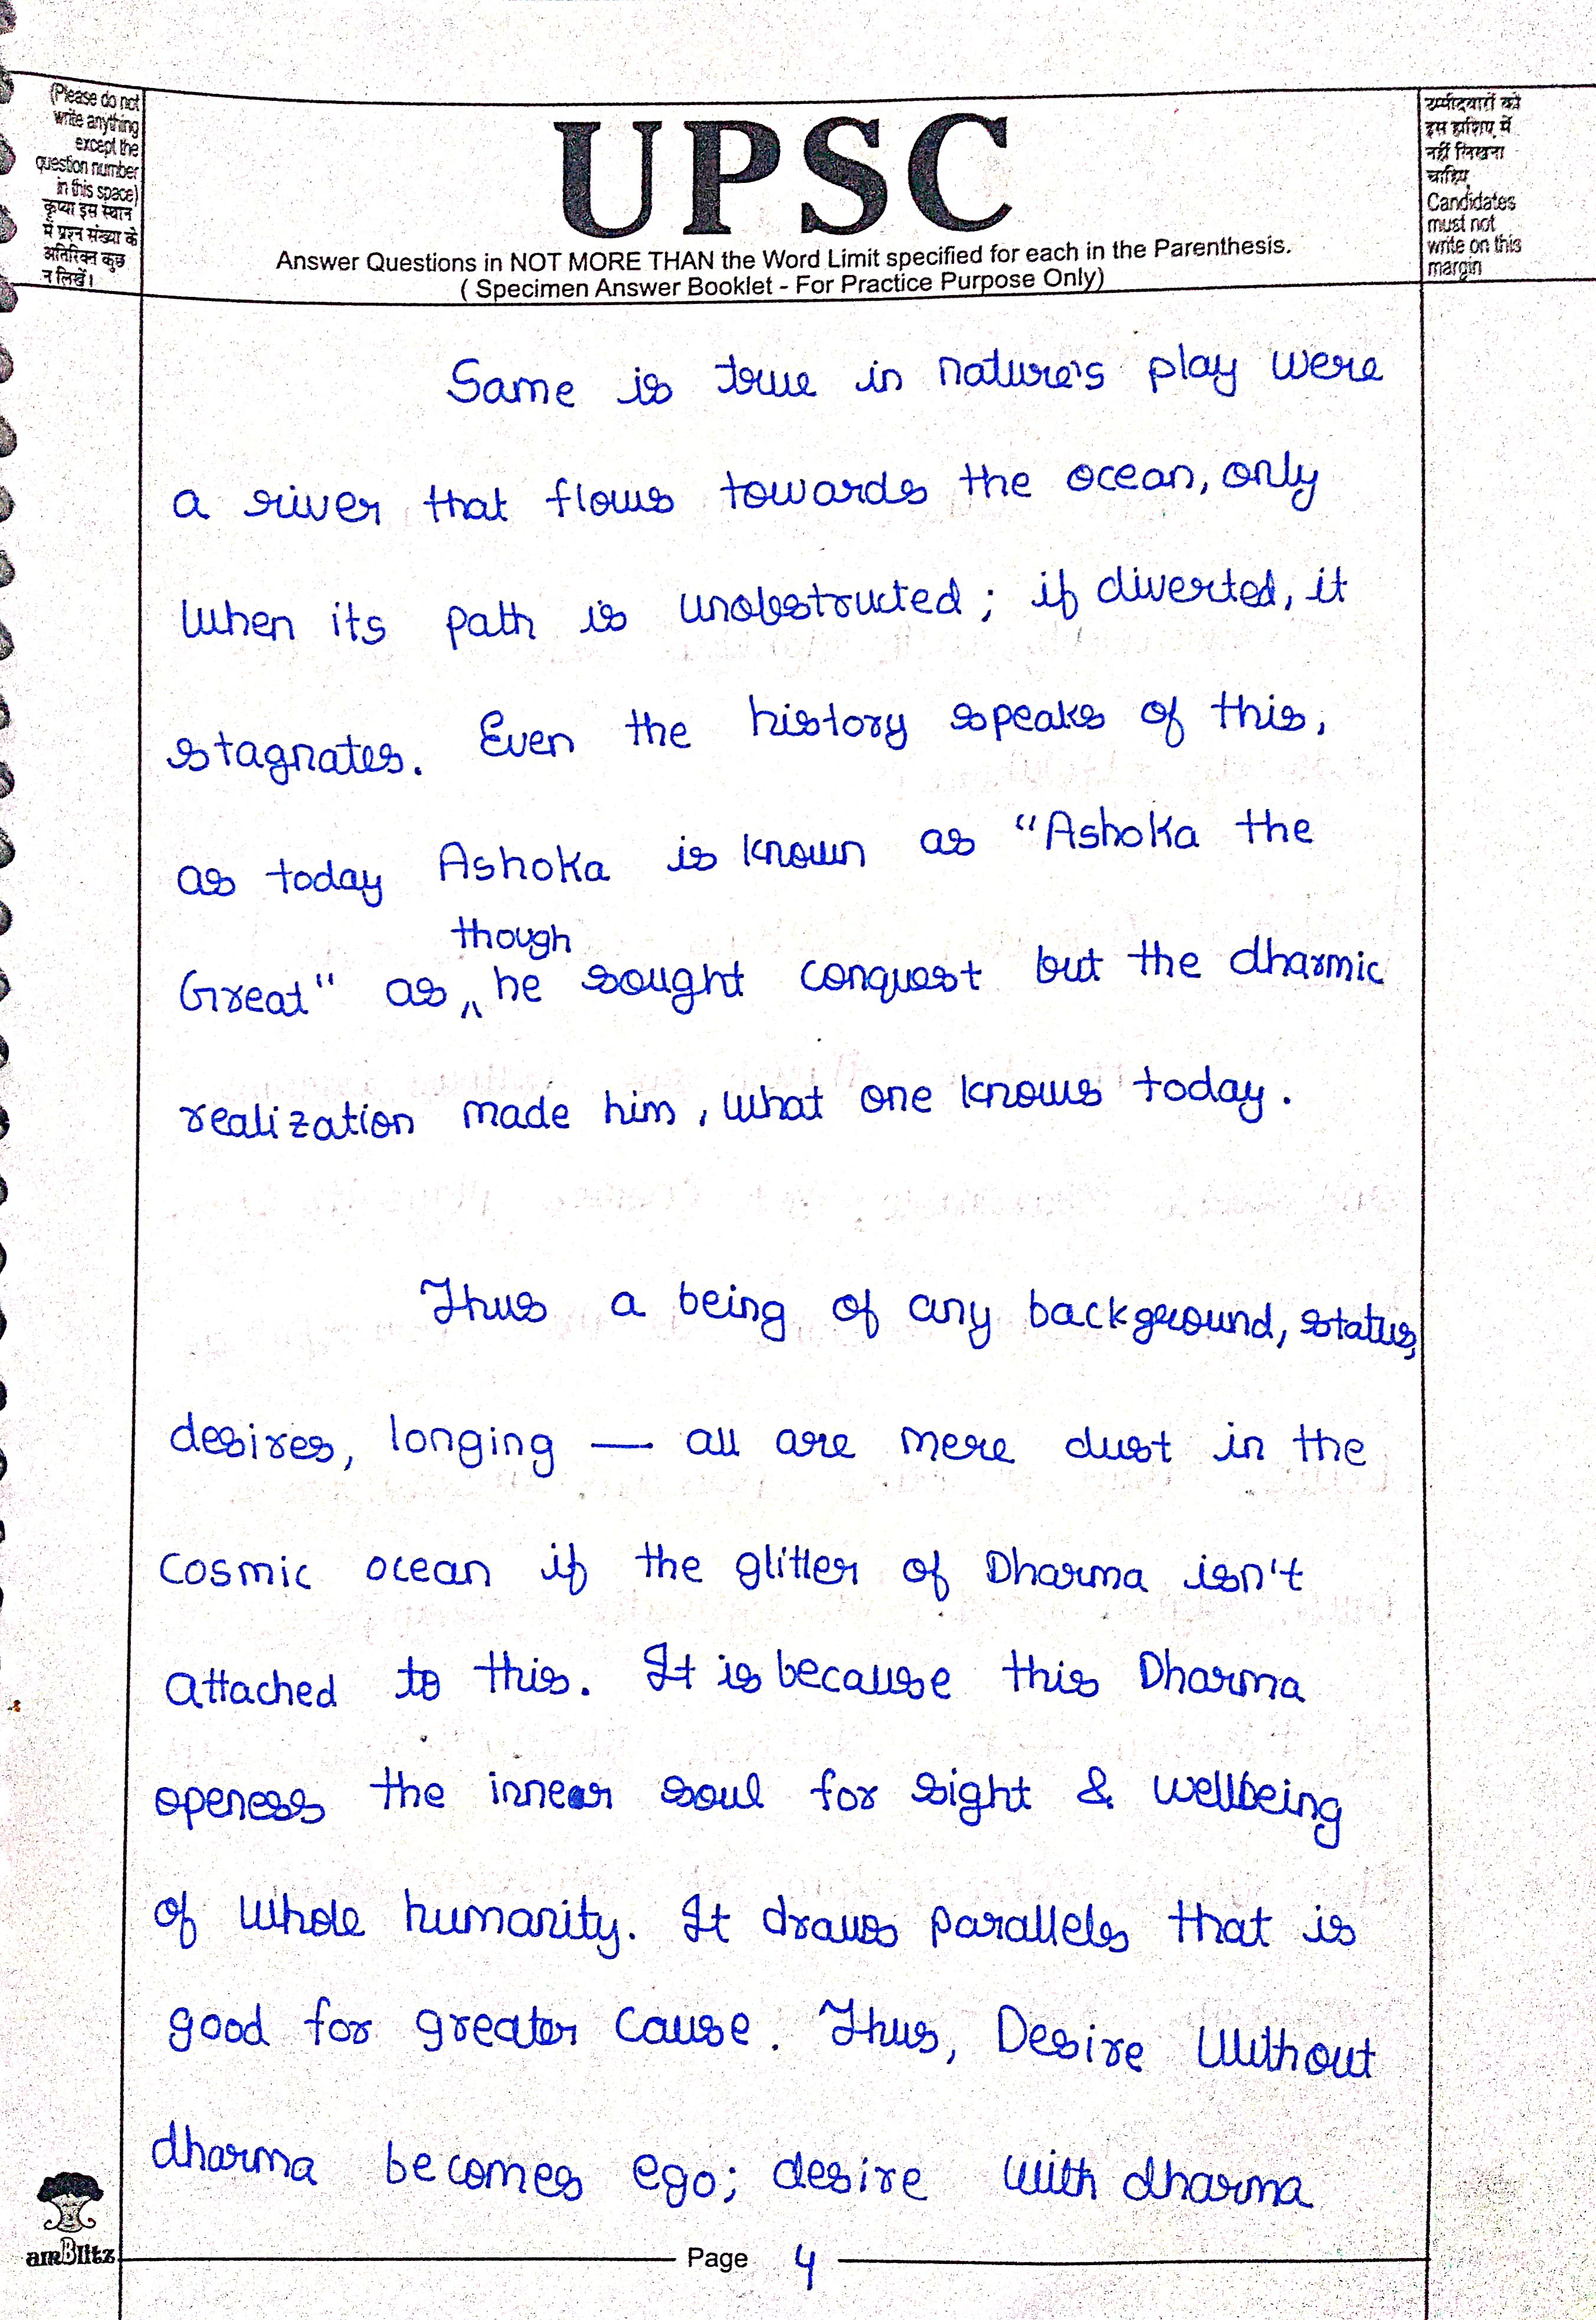 (Please do not
write anything
except the
question number
in this space)
कृप्या इस स्थान
में प्रश्न संख्या के
अतिरिक्त कुछ
न लिखें।
UPSC
Answer Questions in NOT MORE THAN the Word Limit specified for each in the Parenthesis.
( Specimen Answer Booklet - For Practice Purpose Only)
उम्मीदवारों को
इस हाशिए में
नहीं लिखना
चाहिए
Candidates
must not
write on this
margin
Same is true in nature's play were
a river that flows towards the ocean, only
when its path is unobstructed; if diverted, it
stagnates. Even the history speaks of this,
as today Ashoka is known as "Ashoka the
though
Great" as ^ he sought conquest but the dharmic
realization made him, what one knows today.
Thus a being of any background, status,
desires, longing — all are mere dust in the
cosmic ocean if the glitter of Dharma isn't
attached to this. It is because this Dharma
openess the inner soul for sight & wellbeing
of whole humanity. It draws parallels that is
good for greater cause. Thus, Desire Without
dharma becomes ego; desire with dharma
amBlitz
Page 4